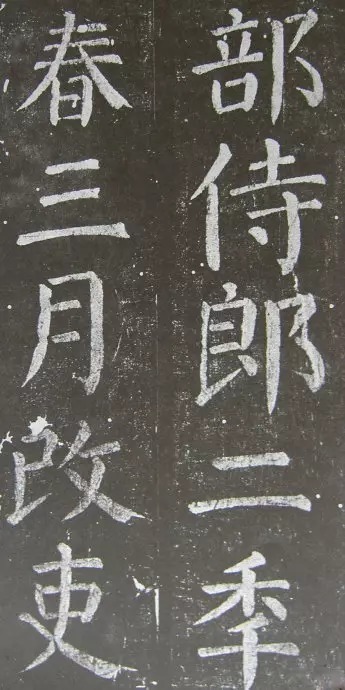 部侍郎二季
春三月改吏